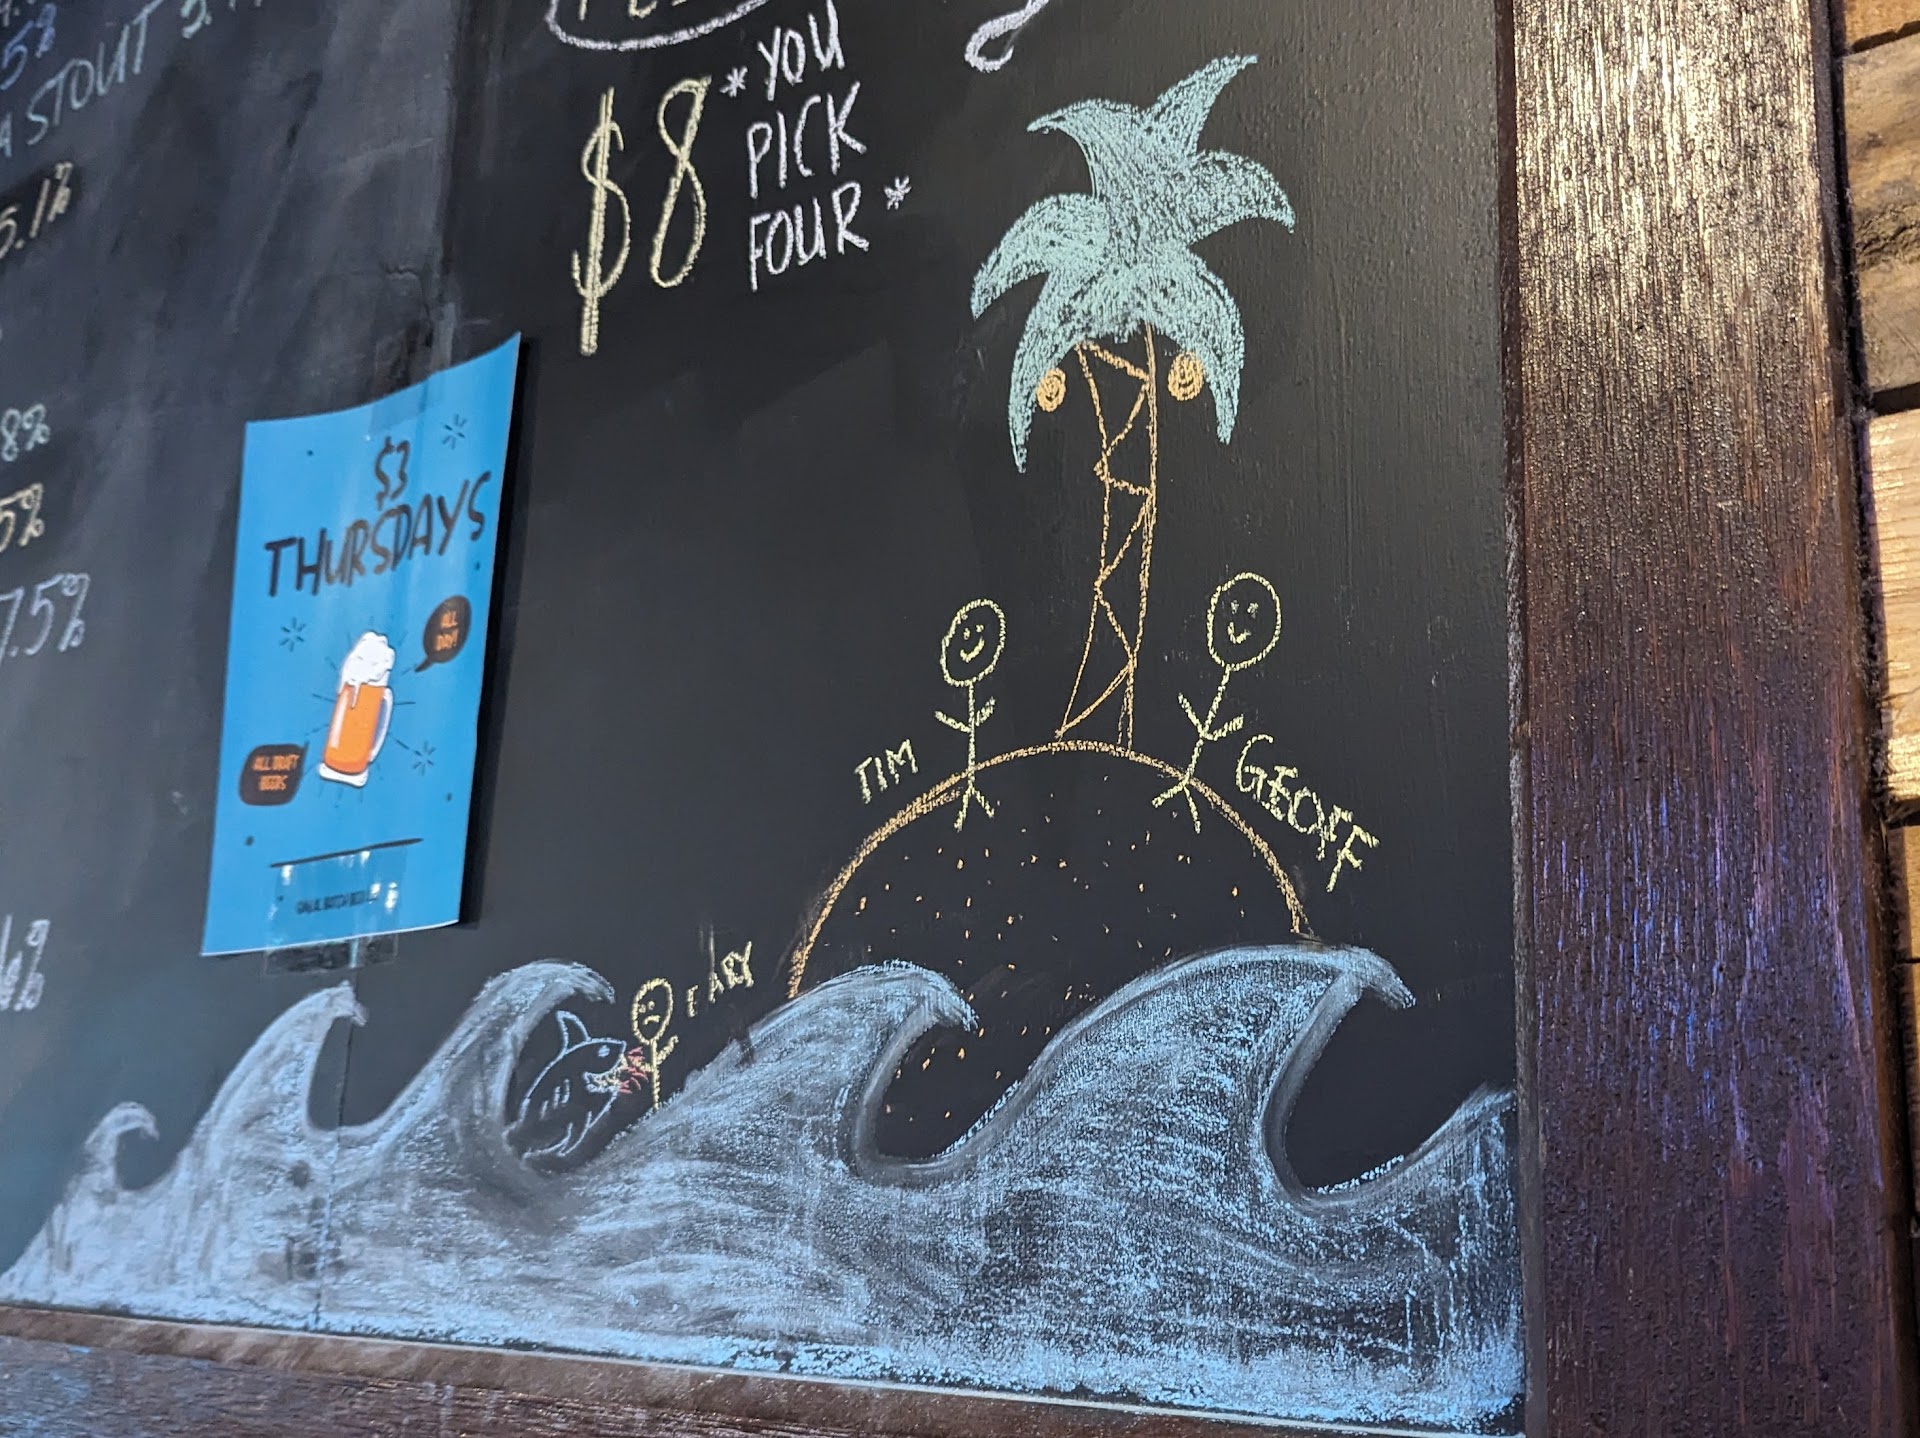 5%
A STOUT
5.1%
8%
5%
7.5%
$8
*YOU
PICK
FOUR*
$3
THURSDAYS
ALL
DAY!
ALL DRAFT
BEERS
TIM
GEOFF
GARY